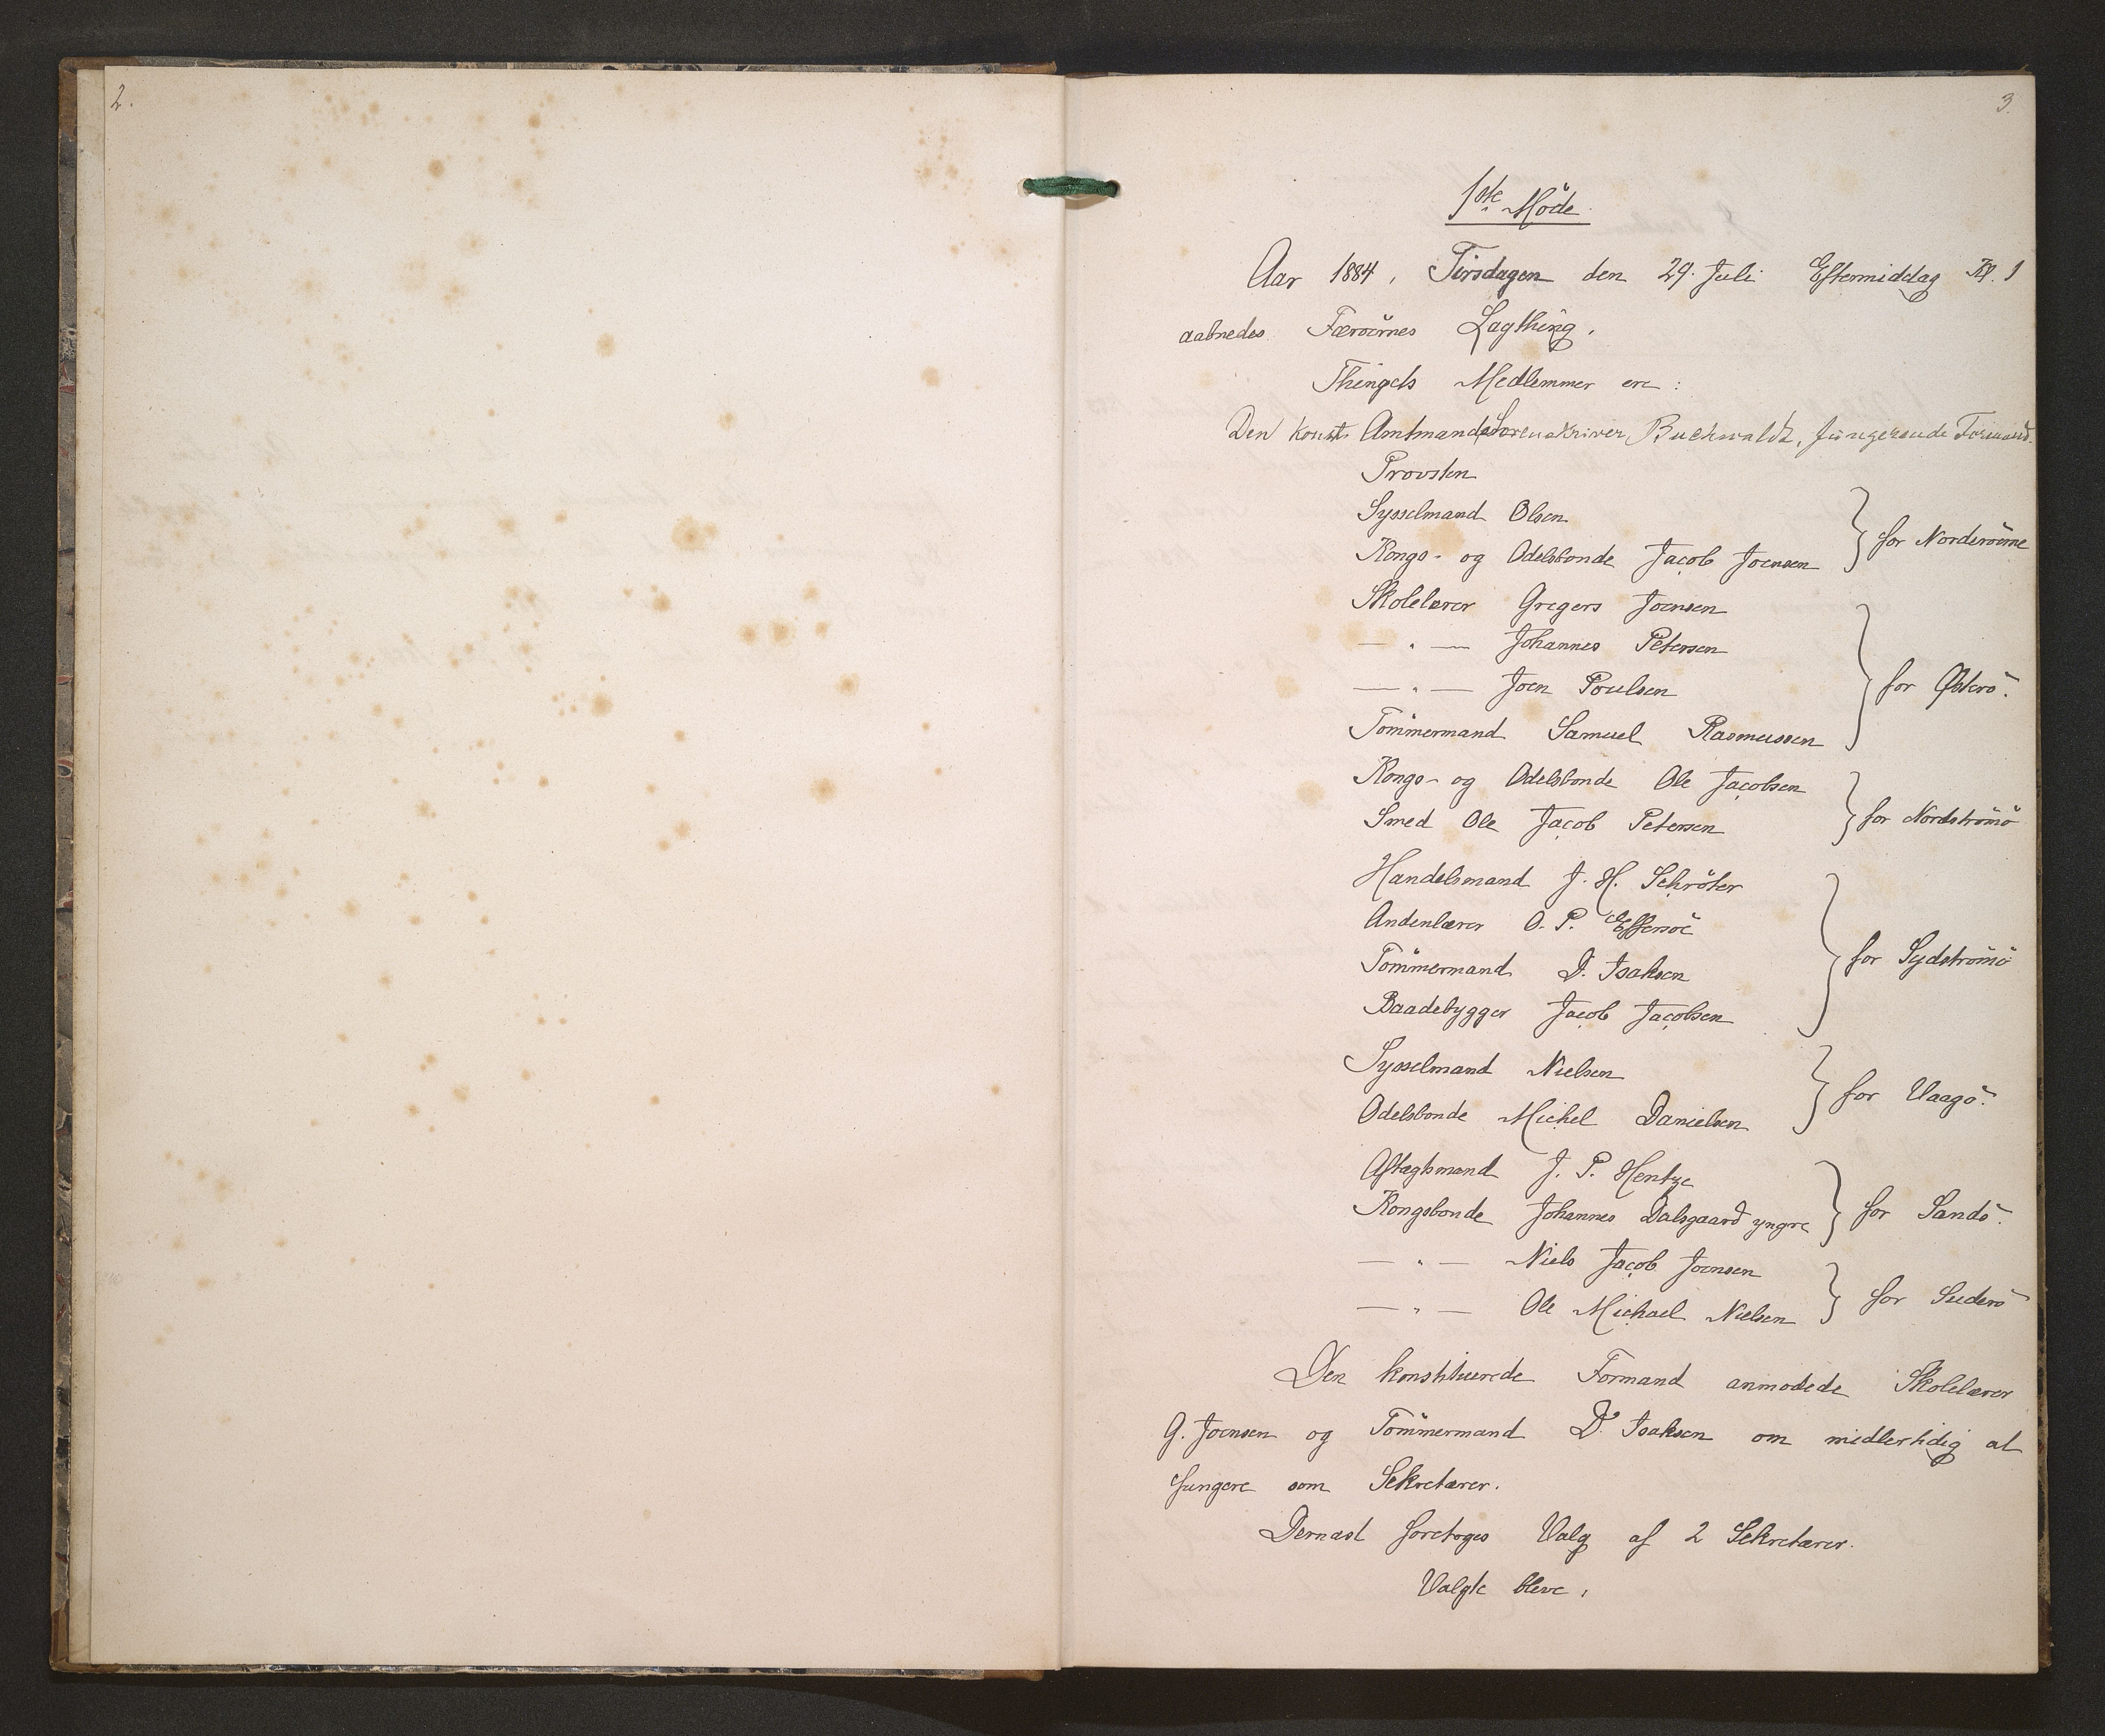 2.
3.
1ste Möde
Aar 1884, Tirsdagen den 29. Juli Eftermiddag Kl. 1
aabnedes Færöernes Lagthing.
Thingets Medlemmer ere:
Den konst. Amtmand, Sorenskriver Buchwaldt, fungerende Formand.
Provsten
Sysselmand Olsen
Kongs- og Odelsbonde Jacob Joensen } for Norderöerne
Skolelærer Gregers Joensen
— " — Johannes Petersen
— " — Joen Poulsen } for Østerö.
Tömmermand Samuel Rasmussen
Kongs- og Odelsbonde Ole Jacobsen
Smed Ole Jacob Petersen } for Nordströmö
Handelsmand J. H. Schröter
Andenlærer O. P. Effersöe
Tömmermand D. Isaksen } for Sydströmö
Baadebygger Jacob Jacobsen
Sysselmand Nielsen
Odelsbonde Michel Danielsen } for Vaagö.
Aftægtsmand J. P. Hentze
Kongsbonde Johannes Dalsgaard yngre } for Sandö.
— " — Niels Jacob Joensen
— " — Ole Michael Nielsen } for Suderö
Den konstituerede Formand anmodede Skolelærer
G. Joensen og Tömmermand D. Isaksen om midlertidig at
fungere som Sekretærer.
Dernæst foretoges Valg af 2 Sekretærer.
Valgte bleve: